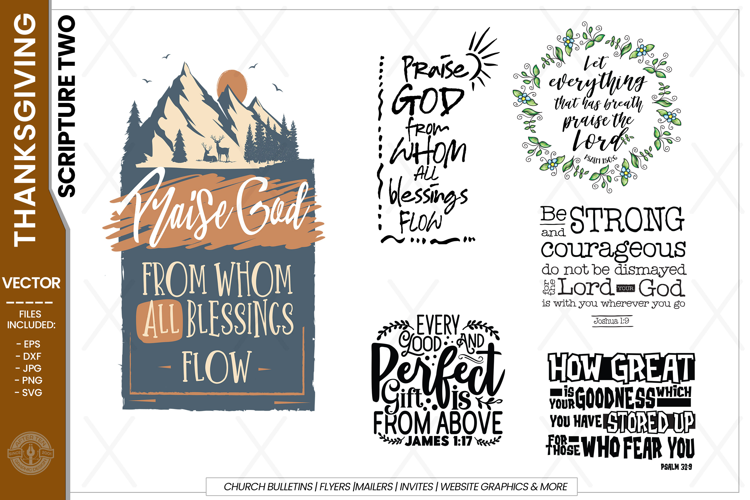 THANKSGIVING
SCRIPTURE TWO
VECTOR
FILES
INCLUDED:
- EPS
- DXF
- JPG
- PNG
- SVG
Praise God
FROM WHOM
ALL BLESSINGS
FLOW
PRaise
GOD
from
WHOM
ALL
blessings
FLOW
Let
everything
that has breath
praise the
Lord
PSALM 150:6
Be STRONG
and
courageous
do not be dismayed
for the Lord YOUR God
is with you wherever you go
Joshua 1:9
EVERY
GOOD AND
Perfect
Gift is
FROM ABOVE
JAMES 1:17
HOW GREAT
IS YOUR GOODNESS WHICH
YOU HAVE STORED UP
FOR THOSE WHO FEAR YOU
PSALM 31:9
CHURCH BULLETINS | FLYERS |MAILERS | INVITES | WEBSITE GRAPHICS & MORE